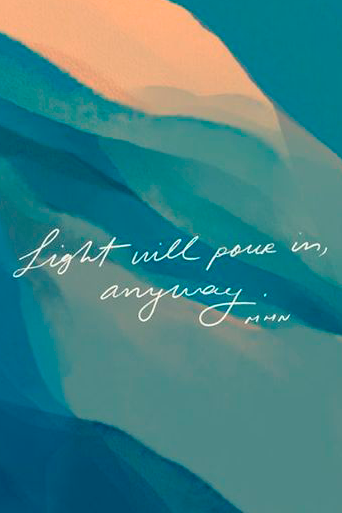 Light will pour in,
anyway.
MHN